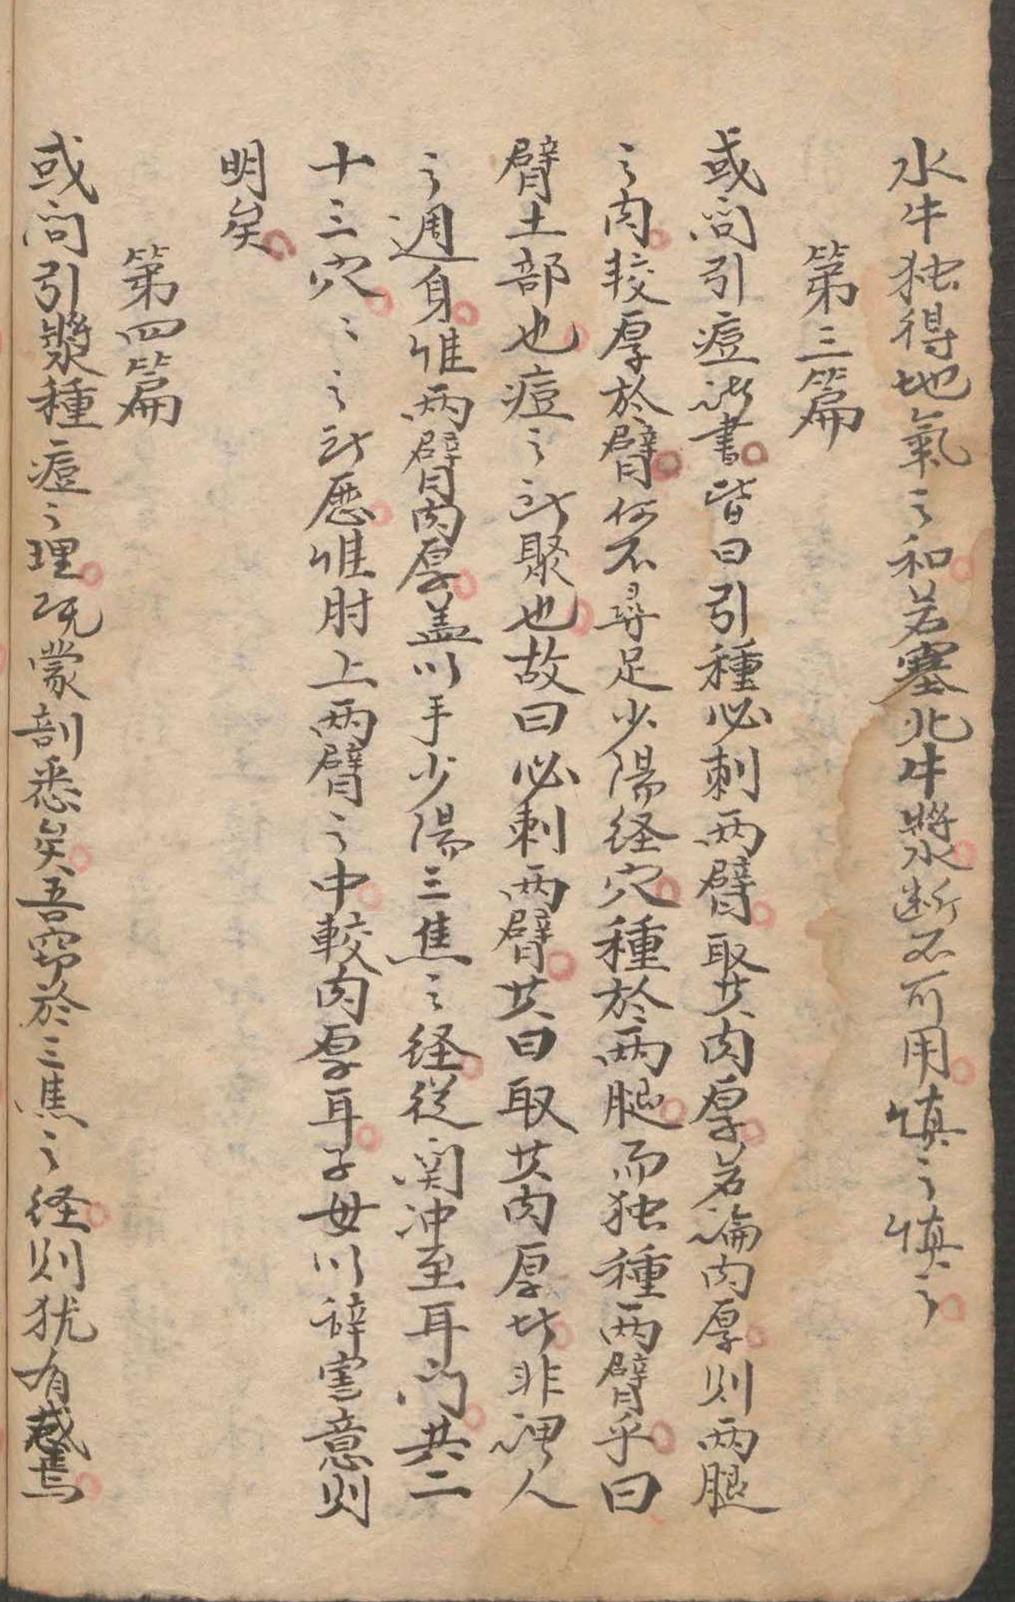 水牛独得地氣之和若塞北牛漿断不可用慎之慎之
第三篇
或问引痘諸書皆曰引種必刺两臂取其肉厚若論肉厚则两腿
之肉較厚於臂何不尋足少陽経穴種於两腿而独種两臂乎曰
臂土部也痘之所聚也故曰必刺两臂其曰取其肉厚者非謂人
之週身惟两臂肉厚盖以手少陽三焦之経從関冲至耳门共二
十三穴〻之所歷惟肘上两臂之中較肉厚耳子毋以辞害意则
明矣
第四篇
或问引漿種痘之理既蒙剖悉矣吾窃於三焦之経则犹有惑焉